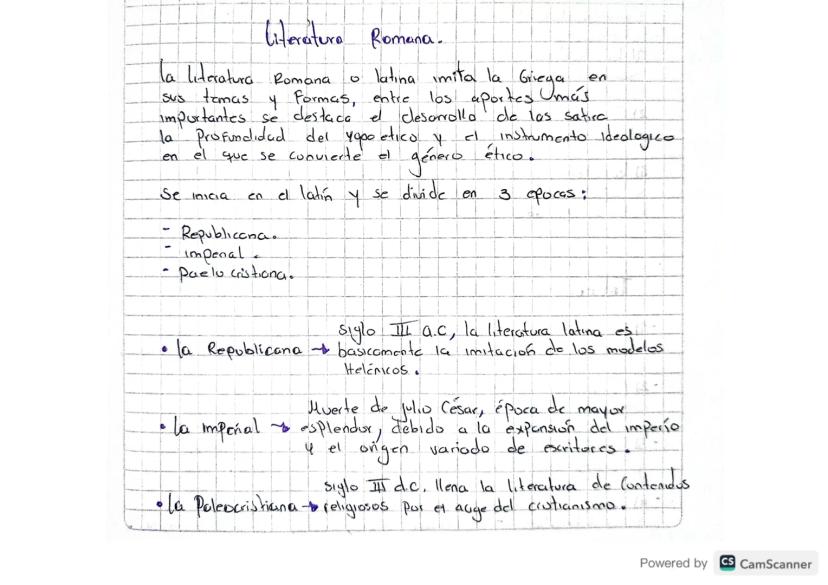 Literatura Romana.
La literatura Romana o latina imita la Griega en
sus temas y Formas, entre los aportes más
importantes se destaca el desarrollo de las satira
la Profundidad del yqoo etico y el instrumento Ideologico
en el que se convierte el género ético.
Se inicia en el latín y se divide en 3 epocas:
- Republicana.
- imperial.
- Paelo cristiana.
siglo III a.c, la literatura latina es
• la Republicana → basicamente la imitación de los modelos
Helénicos.
Muerte de Julio César, época de mayor
• la imperial → esplendor, debido a la expansión del imperio
y el origen variado de escritores.
siglo III d.c. llena la literatura de Contenidos
• la Paleocristiana → religiosos por el auge del cristianismo.
Powered by CS CamScanner